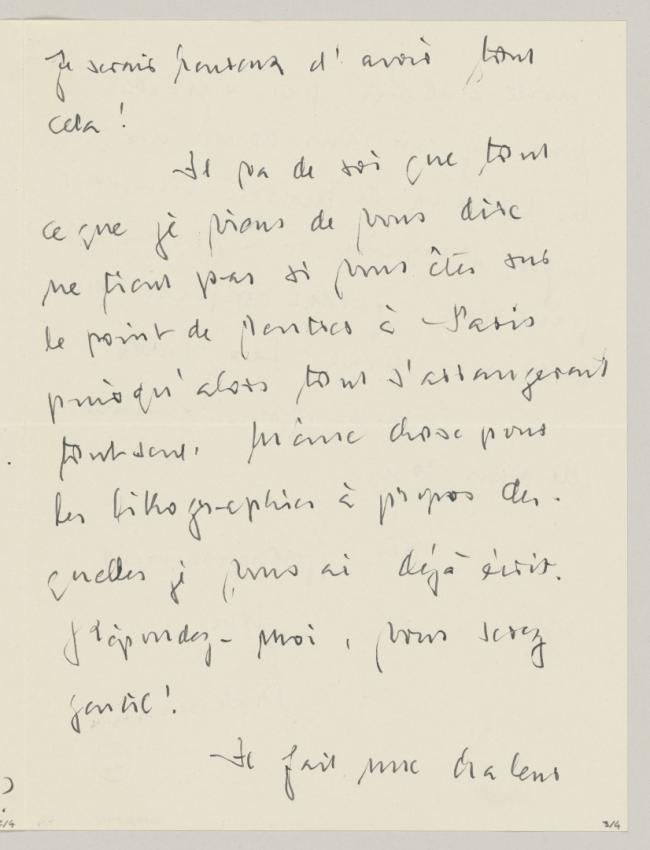 Je serais heureux d'avoir tout
cela !
Il va de soi que tout
ce que je viens de vous dire
ne tient pas si vous êtes sur
le point de rentrer à Paris
puisqu'alors tout s'arrangerait
tout seul. Même chose pour
les lithographies à propos des-
quelles je vous ai déjà écrit.
Répondez-moi, vous serez
gentil !
Il fait une chaleur
3/4